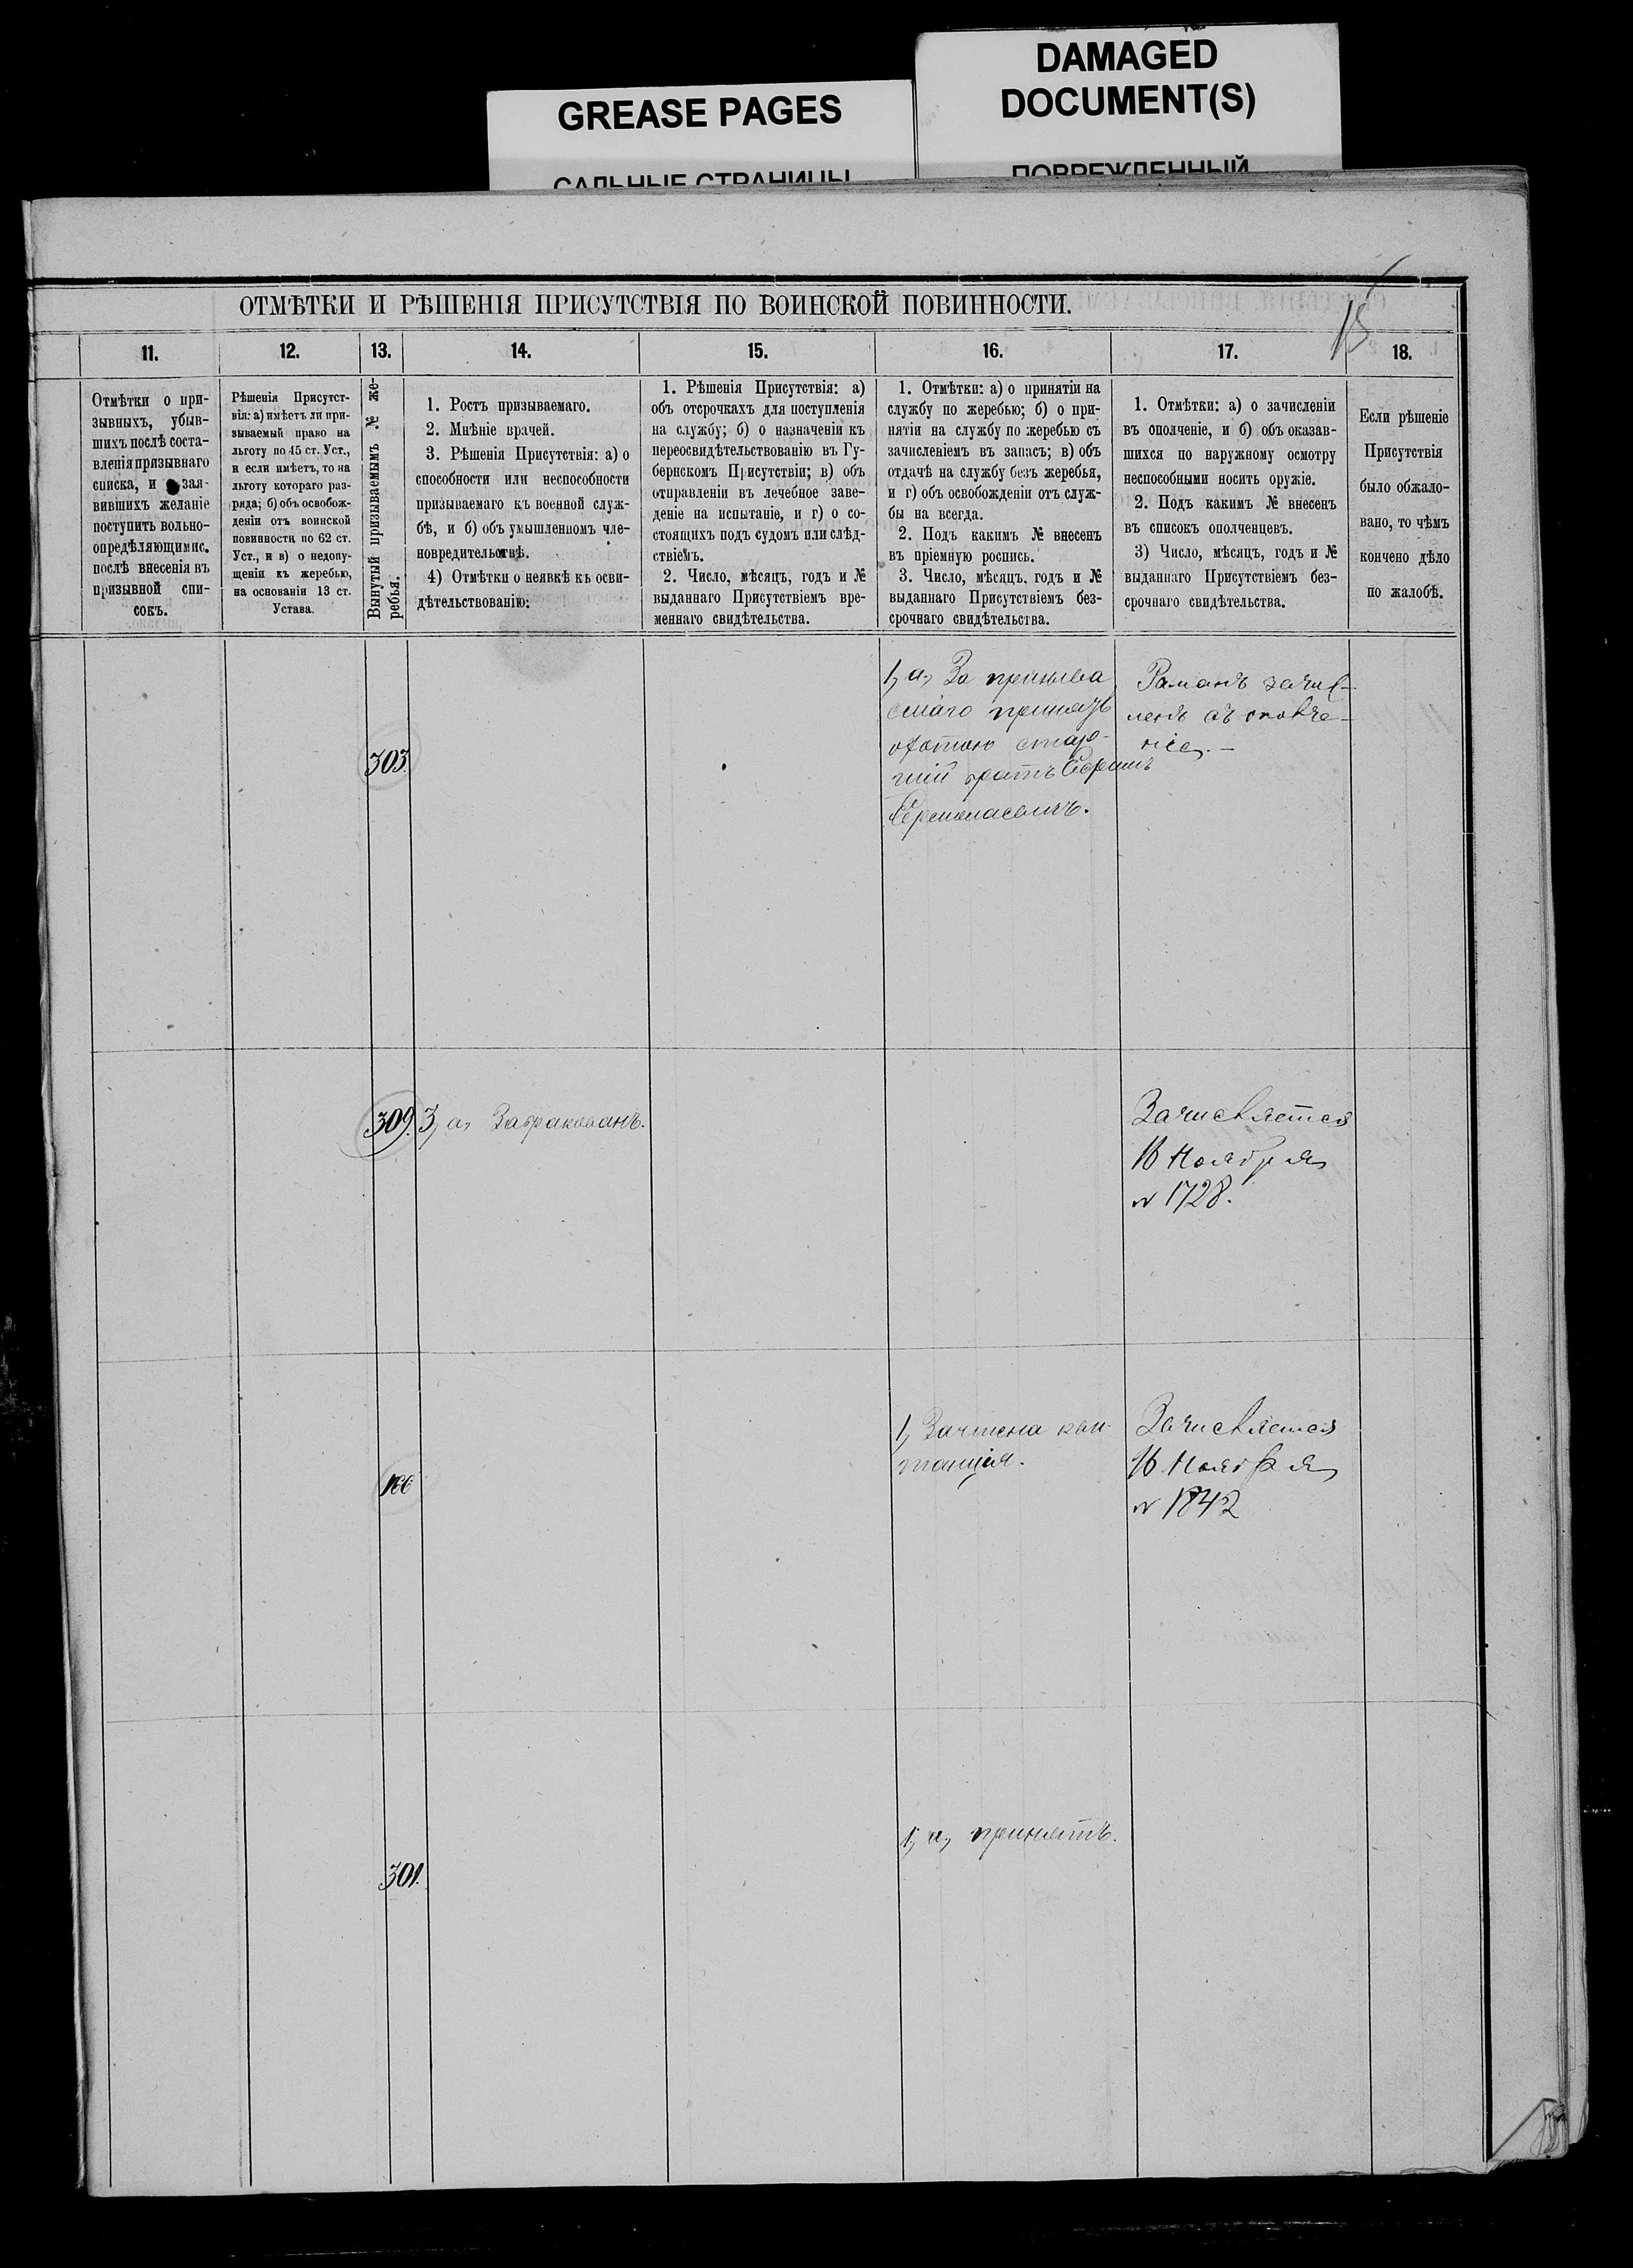 GREASE PAGES
САЛЬНЫЕ СТРАНИЦЫ
DAMAGED
DOCUMENT(S)
ПОВРЕЖДЕННЫЙ
15
ОТМѢТКИ И РѢШЕНІЯ ПРИСУТСТВІЯ ПО ВОИНСКОЙ ПОВИННОСТИ.
11.
12.
13.
14.
15.
16.
17.
18.
Отмѣтки о при-
зывныхъ, убыв-
шихъ послѣ соста-
вленія призывнаго
списка, и зая-
вившихъ желаніе
поступить вольно-
опредѣляющимис.
послѣ внесенія въ
призывной спи-
сокъ.
Рѣшенія Присутст-
вія: а) имѣетъ ли при-
зываемый право на
льготу по 45 ст. Уст.,
и если имѣетъ, то на
льготу котораго раз-
ряда; б) объ освобож-
деніи отъ воинской
повинности по 62 ст.
Уст., и в) о недопу-
щеніи къ жеребью,
на основаніи 13 ст.
Устава.
Вынутый призываемымъ № же-
ребья.
1. Ростъ призываемаго.
2. Мнѣніе врачей.
3. Рѣшенія Присутствія: а) о
способности или неспособности
призываемаго къ военной служ-
бѣ, и б) объ умышленномъ чле-
новредительствѣ.
4) Отмѣтки о неявкѣ къ осви-
дѣтельствованію:
1. Рѣшенія Присутствія: а)
объ отсрочкахъ для поступленія
на службу; б) о назначеніи къ
переосвидѣтельствованію въ Гу-
бернскомъ Присутствіи; в) объ
отправленіи въ лечебное заве-
деніе на испытаніе, и г) о со-
стоящихъ подъ судомъ или слѣд-
ствіемъ.
2. Число, мѣсяцъ, годъ и №
выданнаго Присутствіемъ вре-
меннаго свидѣтельства.
1. Отмѣтки: а) о принятіи на
службу по жеребью; б) о при-
нятіи на службу по жеребью съ
зачисленіемъ въ запасъ; в) объ
отдачѣ на службу безъ жеребья,
и г) объ освобожденіи отъ служ-
бы на всегда.
2. Подъ какимъ № внесенъ
въ пріемную роспись.
3. Число, мѣсяцъ, годъ и №
выданнаго Присутствіемъ без-
срочнаго свидѣтельства.
1. Отмѣтки: а) о зачисленіи
въ ополченіе, и б) объ оказав-
шихся по наружному осмотру
неспособными носить оружіе.
2. Подъ какимъ № внесенъ
въ списокъ ополченцевъ.
3) Число, мѣсяцъ, годъ и №
выданнаго Присутствіемъ без-
срочнаго свидѣтельства.
Если рѣшеніе
Присутствія
было обжало-
вано, то чѣмъ
кончено дѣло
по жалобѣ.
303.
1, а, За призыва
емаго принятъ
охотою стар-
шій братъ
Романъ зачис-
ленъ въ ополче-
ніе. –
309.
3, а, Забракованъ.
Зачисляется
16 Ноября
№ 1728.
166
1, Зачтена кви-
танція.
Зачисляется
16 Ноября
№ 1842
301.
1, а, принятъ.